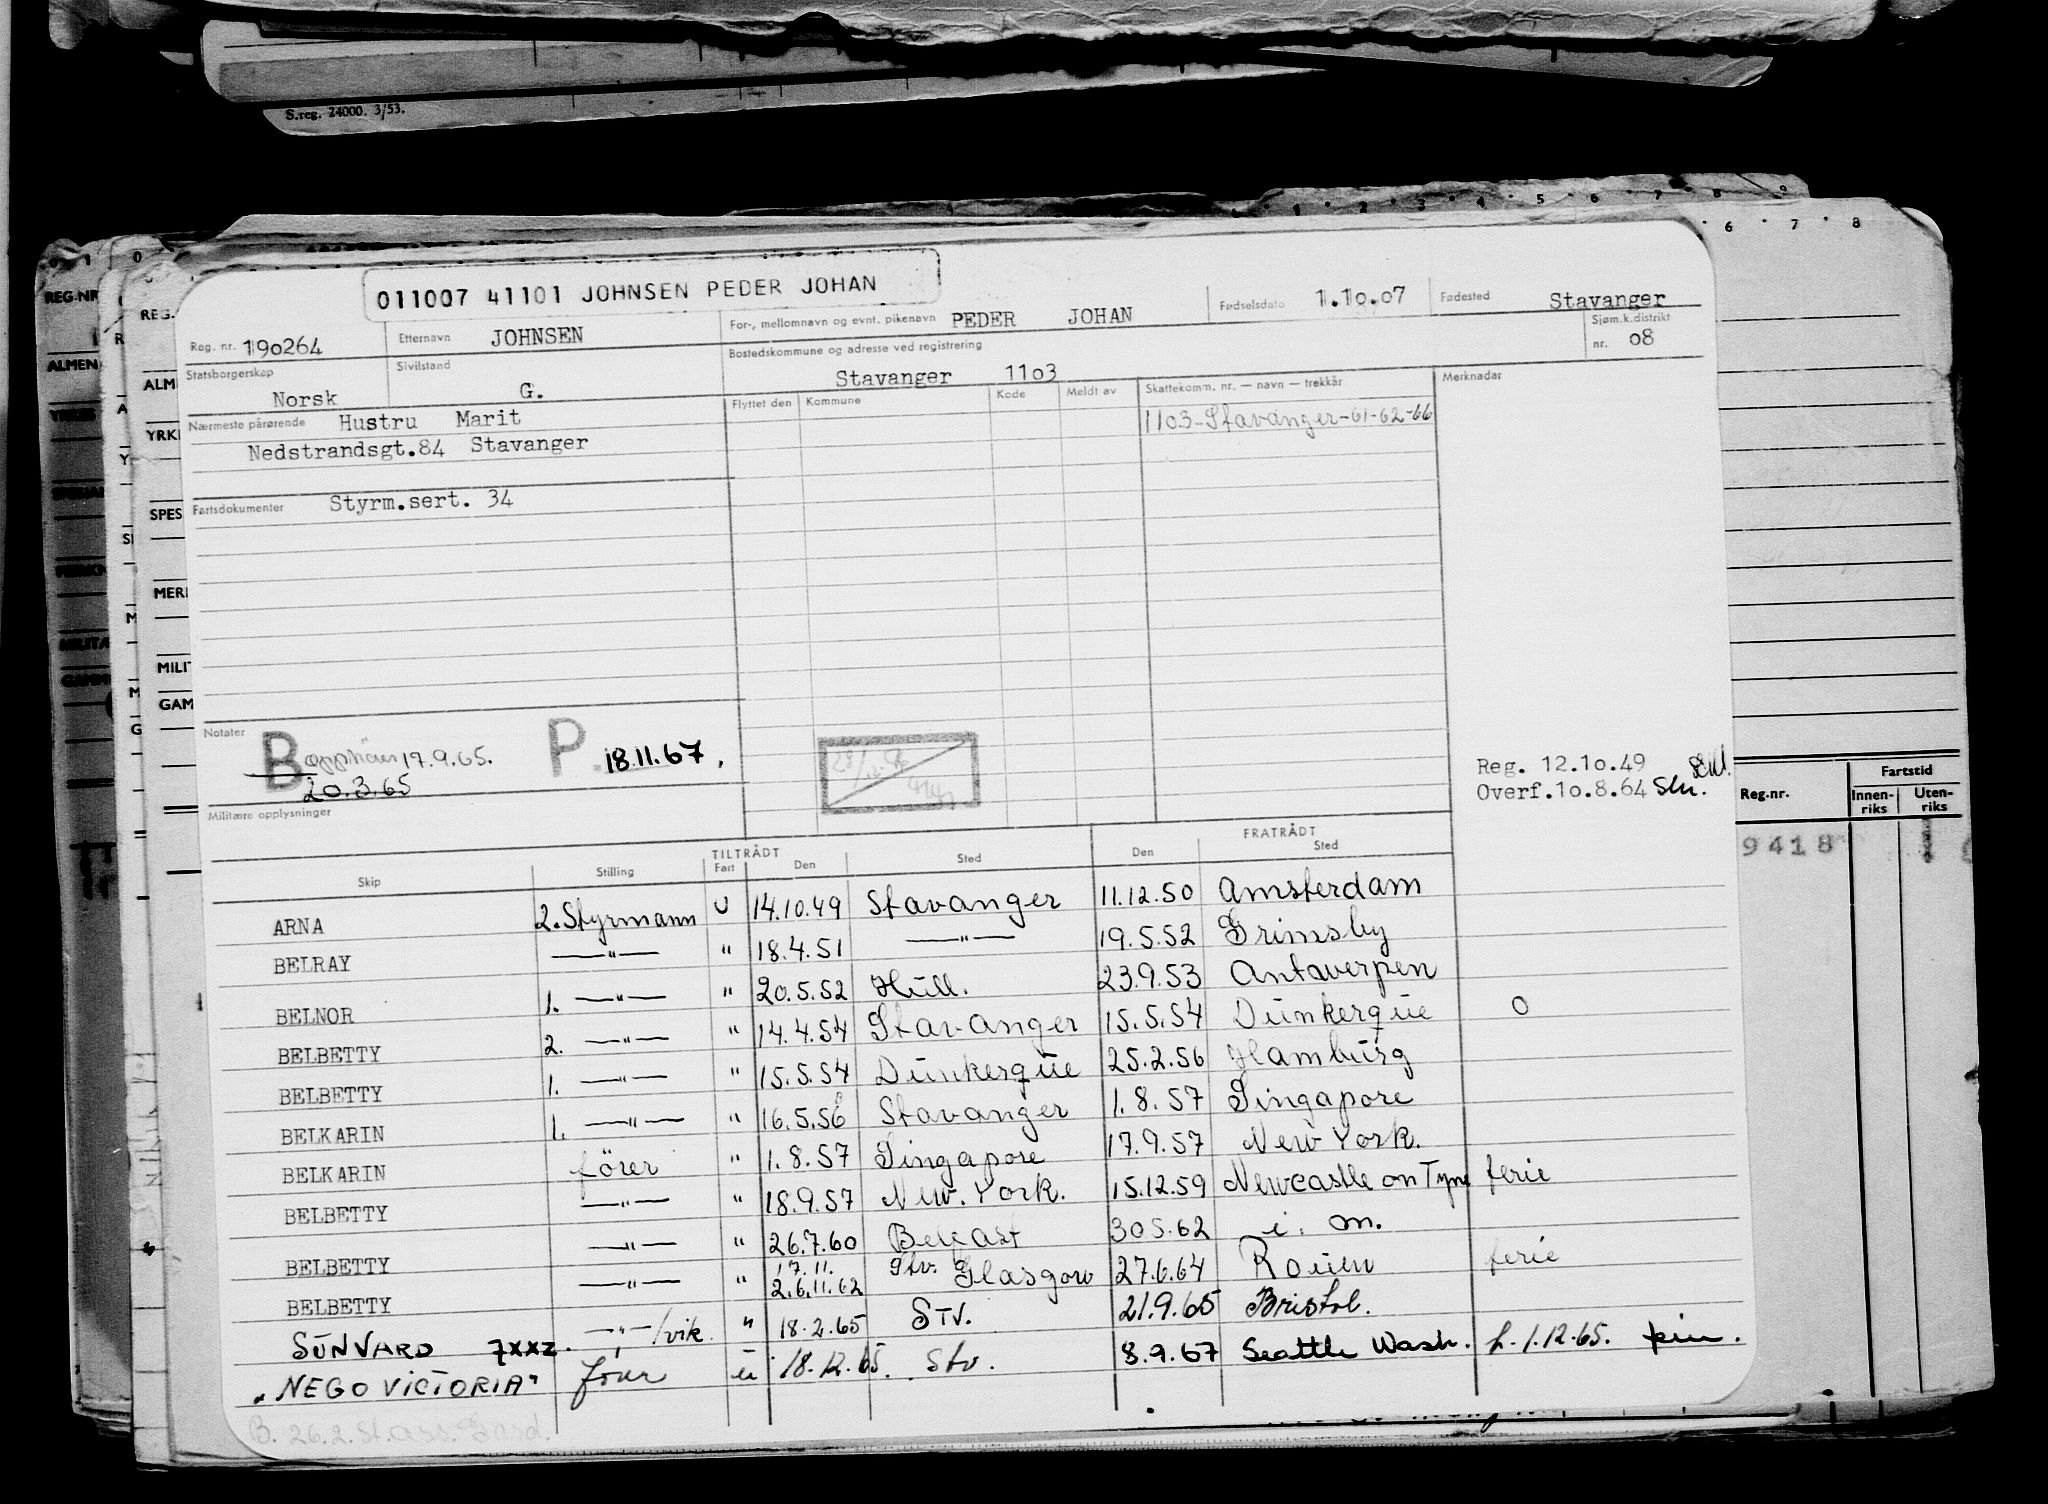 S.reg. 24000. 3/53.
011007 41101 JOHNSEN PEDER JOHAN
Reg. nr. 190264 Etternavn JOHNSEN For-, mellomnavn og evnt. pikenavn PEDER JOHAN Fødselsdato 1.10.07 Fødested Stavanger
Statsborgerskap Norsk Sivilstand G. Bostedskommune og adresse ved registrering Stavanger 1103 Sjøm.k.distrikt nr. 08
Nærmeste pårørende Hustru Marit Flyttet den Kommune Kode Meldt av Skattekomm. nr. — navn — trekkår Merknader
Nedstrandsgt.84 Stavanger 1103-Stavanger-61-62-66
Fartsdokumenter Styrm.sert. 34
Notater B 17.9.65. P 18.11.67.
20.3.65
Reg. 12.10.49
Overf.10.8.64
Militære opplysninger
TILTRÅDT FRATRÅDT
Skip Stilling Fart Den Sted Den Sted
ARNA 2. Styrmann U 14.10.49 Stavanger 11.12.50 Amsterdam
BELRAY —"— " 18.4.51 —"— 19.5.52 Grimsby
BELNOR 1. —"— " 20.5.52 Hull. 23.9.53 Antwerpen
BELBETTY 2. —"— " 14.4.54 Stavanger 15.5.54 Dunkerque O
BELBETTY 1. —"— " 15.5.54 Dunkerque 25.2.56 Hamburg
BELKARIN 1. —"— " 16.5.56 Stavanger 1.8.57 Singapore
BELKARIN förer " 1.8.57 Singapore 17.9.57 New York.
BELBETTY —"— " 18.9.57 New York. 15.12.59 Newcastle on Tyne ferie
BELBETTY —"— " 26.7.60 Belfast 30.5.62 i. m.
BELBETTY —"— " 17.11. 26.11.62 Stv. Glasgow 27.6.64 Rouen ferie
SUNVARD 7XXZ. —"—/vik. " 18.2.65 Stv. 21.9.65 Bristol.
"NEGO VICTORIA" förer u 18.12.65. Stv. 8.9.67 Seattle Wash. h. 1.12.65.
Reg.nr. Fartstid
Innenriks Utenriks
9418